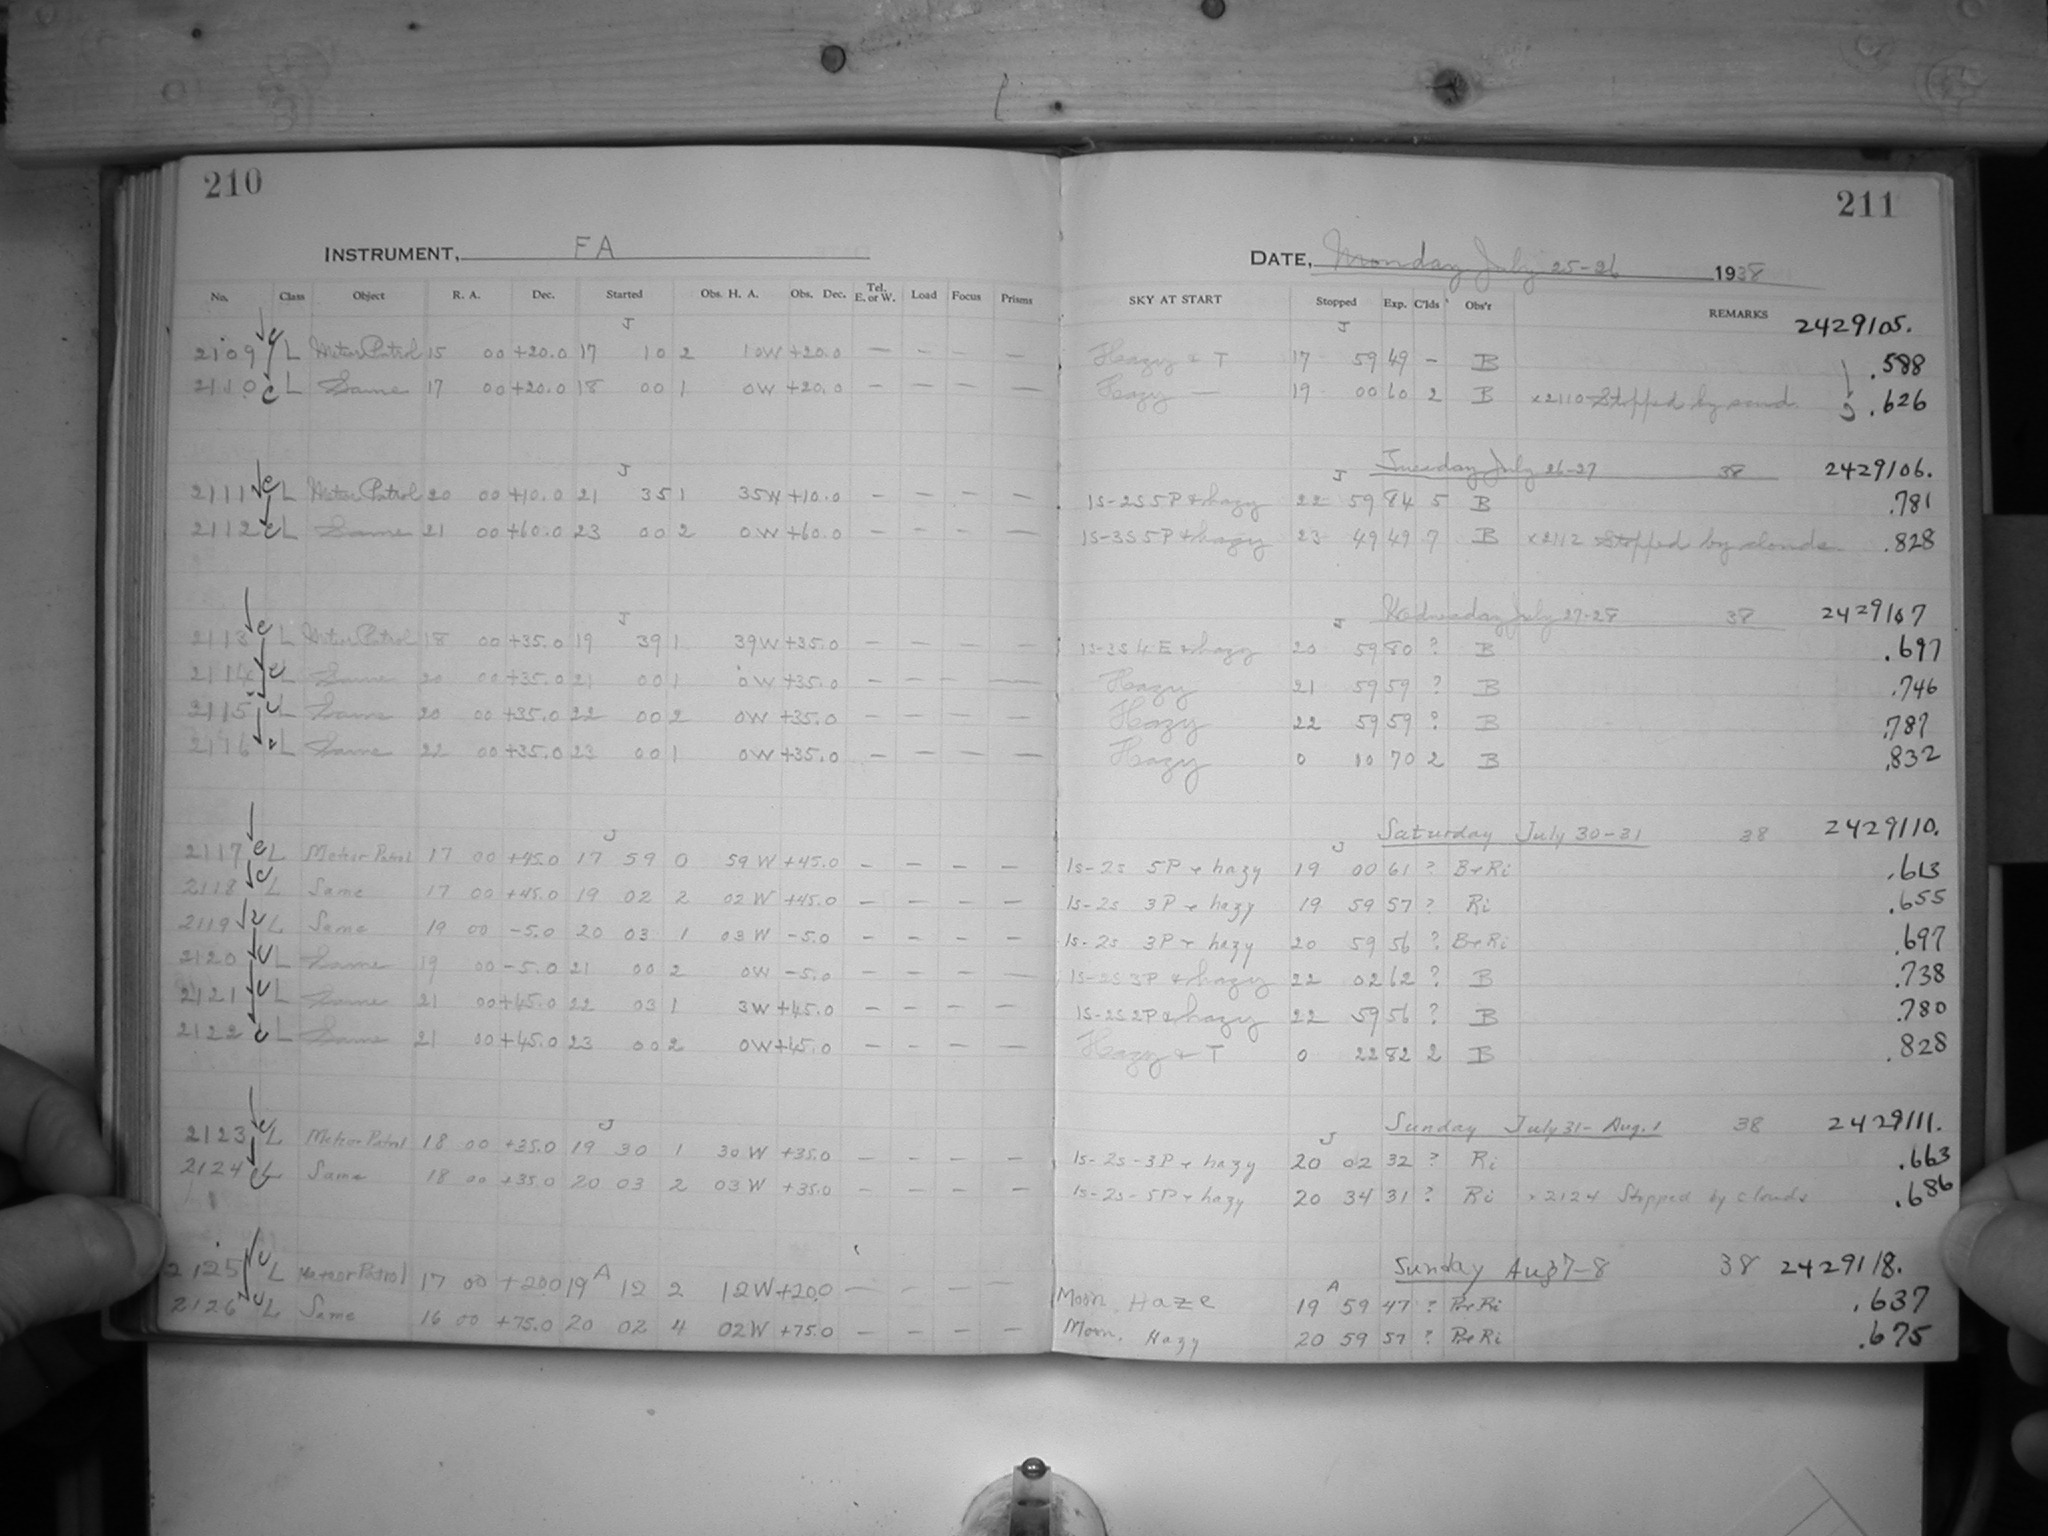 210
INSTRUMENT, FA
No. Class Object R. A. Dec. Started Obs. H. A. Obs. Dec. Tel. E. or W. Load Focus Prisms
J
2109 L Meteor Patrol 15 00 +20.0 17 10 2 10W +20.0 — — — —
2110 L Same 17 00 +20.0 18 00 1 0W +20.0 — — — —
J
2111 L Meteor Patrol 20 00 +10.0 21 35 1 35W +10.0 — — — —
2112 L Same 21 00 +60.0 23 00 2 0W +60.0 — — — —
J
2113 L Meteor Patrol 18 00 +35.0 19 39 1 39W +35.0 — — — —
2114 L Same 20 00 +35.0 21 00 1 0W +35.0 — — — —
2115 L Same 20 00 +35.0 22 00 2 0W +35.0 — — — —
2116 L Same 22 00 +35.0 23 00 1 0W +35.0 — — — —
J
2117 L Meteor Patrol 17 00 +45.0 17 59 0 59 W +45.0 — — — —
2118 L Same 17 00 +45.0 19 02 2 02 W +45.0 — — — —
2119 L Same 19 00 -5.0 20 03 1 03 W -5.0 — — — —
2120 L Same 19 00 -5.0 21 00 2 0W -5.0 — — — —
2121 L Same 21 00 +45.0 22 03 1 3W +45.0 — — — —
2122 L Same 21 00 +45.0 23 00 2 0W +45.0 — — — —
J
2123 L Meteor Patrol 18 00 +35.0 19 30 1 30 W +35.0 — — — —
2124 L Same 18 00 +35.0 20 03 2 03 W +35.0 — — — —
A
2125 L Meteor Patrol 17 00 +20.0 19 12 2 12W +20.0 — — — —
2126 L Same 16 00 +75.0 20 02 4 02W +75.0 — — — —
211
DATE, Monday July 25-26 1938
SKY AT START Stopped Exp. C'lds Obs'r REMARKS
2429105.
J
Hazy & T 17 59 49 — B .588
Hazy — 19 00 60 2 B x2110 Stopped by .626
J Tuesday July 26-27 38 2429106.
1S-2S 5P & hazy 22 59 84 5 B .781
1S-3S 5P & hazy 23 49 49 7 B x2112 Stopped by clouds. .828
J Wednesday July 27-28 38 2429107
1S-3S 4E & hazy 20 59 80 ? B .697
Hazy 21 59 59 ? B .746
Hazy 22 59 59 ? B .787
Hazy 0 10 70 2 B .832
J Saturday July 30-31 38 2429110.
1s-2s 5P & hazy 19 00 61 ? B&Ri .613
1s-2s 3P & hazy 19 59 57 ? Ri .655
1s-2s 3P & hazy 20 59 56 ? B&Ri .697
1S-2S 3P & hazy 22 02 62 ? B .738
1S-2S 2P & hazy 22 59 56 ? B .780
Hazy & T 0 22 82 2 B .828
J Sunday July 31-Aug. 1 38 2429111.
1s-2s-3P & hazy 20 02 32 ? Ri .663
1s-2s-5P & hazy 20 34 31 ? Ri x2124 Stopped by clouds .686
A Sunday Aug 7-8 38 2429118.
Moon, Haze 19 59 47 ? .637
Moon, Hazy 20 59 57 ? .675